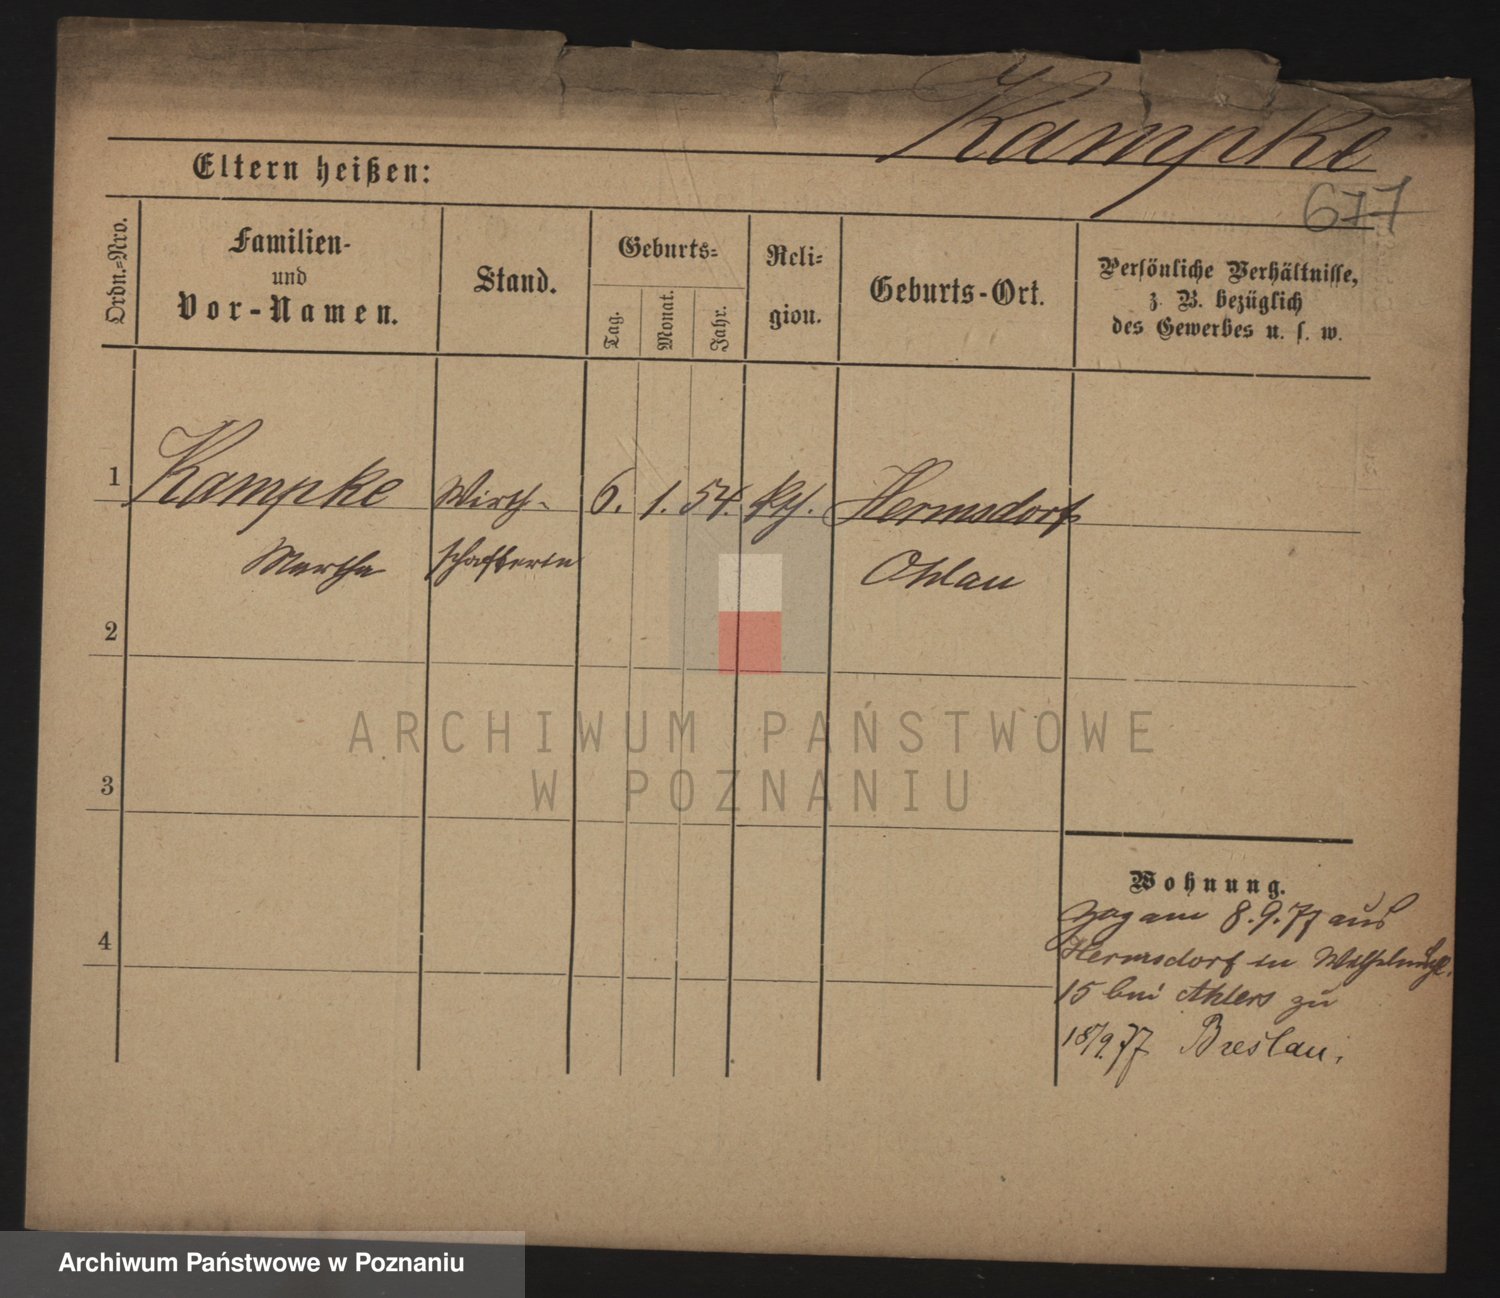 Kampke
Eltern heißen:
677
Ordn.-Nro.
Familien-
und
Vor-Namen.
Stand.
Geburts-
Tag.
Monat.
Jahr.
Reli-
gion.
Geburts-Ort.
Persönliche Verhältnisse,
z. B. bezüglich
des Gewerbes u. s. w.
1
Kampke
Wirth-
6. 1. 54.
kth.
Hermsdorf
Martha
schafterin
Ohlau
2
ARCHIWUM PAŃSTWOWE
W POZNANIU
3
4
Wohnung.
Zog am 8.9.77 aus
Hermsdorf in
15 bei Ahlers zu
18/9.77 Breslau.
Archiwum Państwowe w Poznaniu